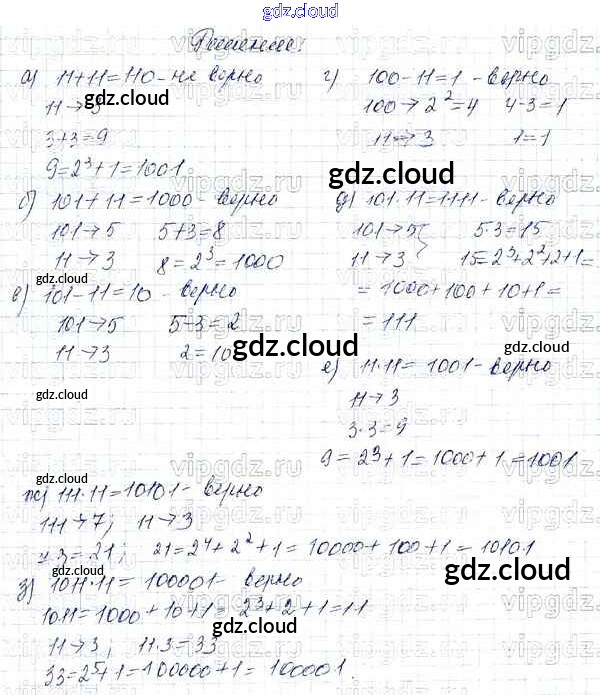 gdz.cloud
Решение:
а) 11+11=110 - не верно
11→3
3+3=9
9=2³+1=1001
б) 101+11=1000 - верно
101→5 5+3=8
11→3 8=2³=1000
в) 101-11=10 - верно
101→5 5-3=2
11→3 2=10
г) 100-11=1 - верно
100→2²=4 4-3=1
11→3 1=1
д) 101·11=1111 - верно
101→5 5·3=15
11→3 15=2³+2²+2+1=
=1000+100+10+1=
=111
е) 11·11=1001 - верно
11→3
3·3=9
9=2³+1=1000+1=1001
ж) 111·11=10101 - верно
111→7; 11→3
7·3=21; 21=2⁴+2²+1=10000+100+1=10101
з) 1011·11=100001 - верно
1011=1000+10+1=2³+2+1=11
11→3; 11·3=33
33=2⁵+1=100000+1=100001.
gdz.cloud
gdz.cloud
gdz.cloud
gdz.cloud
gdz.cloud
gdz.cloud
gdz.cloud
gdz.cloud
gdz.cloud
gdz.cloud
vipgdz.ru